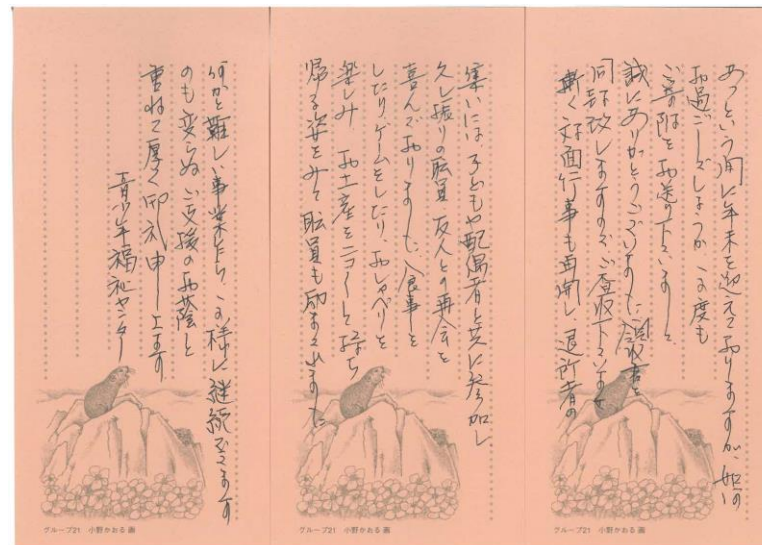 あっという間に年末を迎えておりますが、如何
お過ごしでしょうか この度も
ご寄附をお送り下さいまして
誠にありがとうございました。領収書を
同封致しますのでご査収下さいませ
漸く対面行事も再開し、退所者の
集いには 子どもや配偶者と共に参加し
久し振りの職員 友人との再会を
喜んでおりました。食事を
したり、ゲームをしたり、おしゃべりを
楽しみ お土産をニコニコと持ち
帰る姿をみて職員も励まされました
何かと難しい事業乍ら、この様に継続できます
のも変らぬご支援のお蔭と
重ねて厚く御礼申し上ます
青少年福祉センター
グループ21 小野かおる 画
グループ21 小野かおる 画
グループ21 小野かおる 画